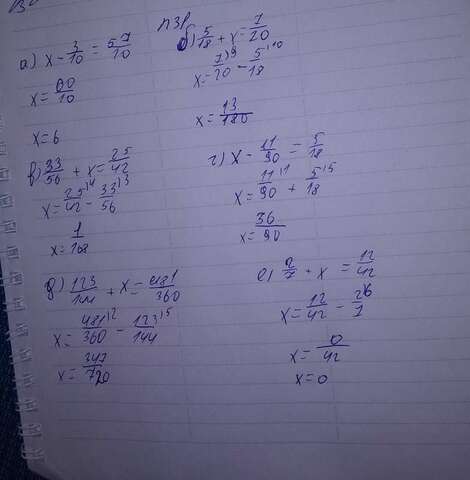 а) x - 3/10 = 5 7/10
x = 60/10
x = 6
б) 5/18 + x = 7/20
x = 7/20 - 5/18
x = 13/180
в) 33/56 + x = 25/42
x = 25/42 - 33/56
x = 1/168
г) x - 11/90 = 5/18
x = 11/90 + 5/18
x = 36/90
д) 123/144 + x = 481/360
x = 481/360 - 123/144
x = 347/720
е) 2/7 + x = 12/42
x = 12/42 - 2/7
x = 0/42
x = 0